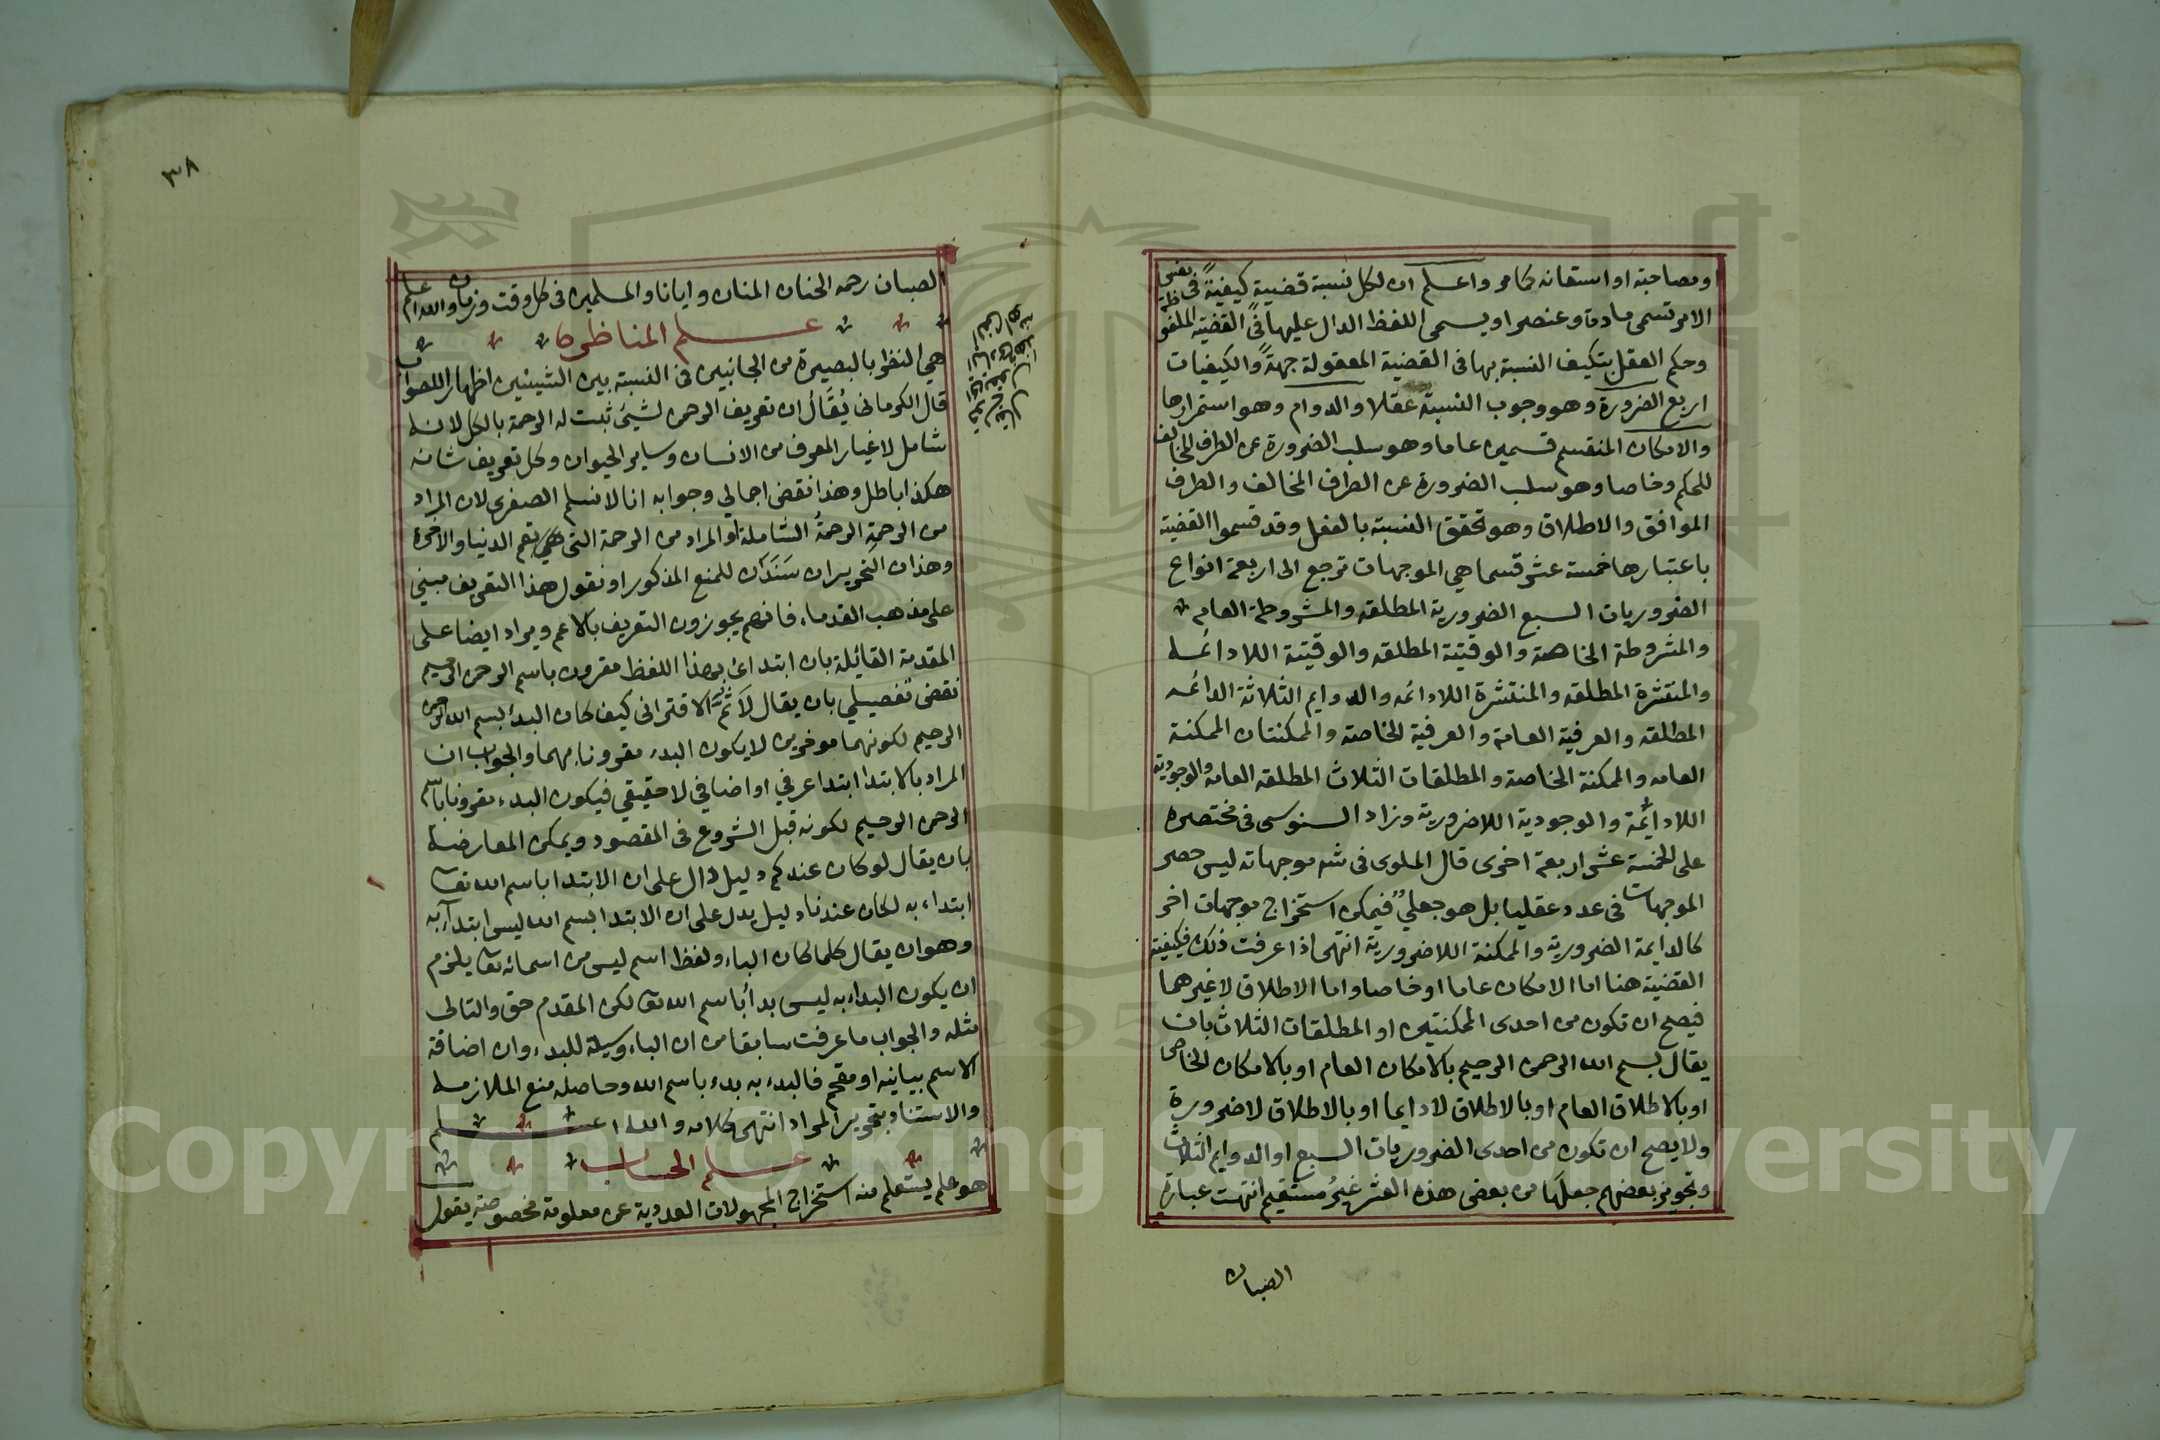 ومصاحبة او استعانه كامر واعلم ان لكل نسبة قضية كيفية في نفس
الامر تسمى مادة وعنصرا ويسمى اللفظ الدال عليها في القضية الملفوظة
وحكم العقل بتكيف النسبة بها في القضية المعقولة جهة والكيفيات
اربع الضرورة وهو وجوب النسبة عقلا والدوام وهو استمرارها
والامكان المنقسم قسمين عاما وهو سلب الضرورة عن الطرف المخالف
للحكم وخاصا وهو سلب الضرورة عن الطرف المخالف والطرف
الموافق والاطلاق وهو تحقق النسبة بالفعل وقد قسموا القضية
باعتبارها خمسة عشر قسما هي الموجهات ترجع الى اربعة انواع
الضروريات السبع الضرورية المطلقه والمشروطة العامه
والمشروطة الخاصة والوقتية المطلقه والوقيتة اللادائمه
والمنتشرة المطلقه والمنتشرة اللادائمه والدوايم الثلاثة الدائمه
المطلقه والعرفية العامة والعرفية الخاصة والممكنتان الممكنة
العامه والممكنة الخاصة والمطلقات الثلاث المطلقه العامة والوجودية
اللادائمة والوجودية اللاضرورية وزاد السنوسى فى مختصره
على الخمسة عشر اربعة اخرى قال الملوى فى شرح موجهاته ليس حصر
الموجهات فى عدد عقليا بل هو جعلي فيمكن استخراج موجهات اخر
كالدايمة الضرورية والممكنة اللاضرورية انتهى اذا عرفت ذلك فكيفية
القضية هنا اما الامكان عاما او خاصا واما الاطلاق لا غيرهما
فيصح ان تكون من احدى الممكنتين او المطلقات الثلاث بان
يقال بسم الله الرحمن الرحيم بالامكان العام او بالامكان الخاص
او بالاطلاق العام او بالاطلاق لادايما او بالاطلاق لاضرورة
ولا يصح ان تكون من احدى الضروريات السبع او الدوايم الثلاث
وتجويز بعضهم جعلها من بعض هذه العشر غير مستقيم انتهت عبارة
الصبان
٣٨
الصبان رحمه الحنان المنان وايانا والمسلمين فى كل وقت وزمان والله اعلم
علم المناظره
هي النظر بالبصيرة من الجانبين فى النسبة بين الشيئين اظهارا للصواب
قال الكرمانى يقال ان تعريف الرحمن لشيئ ثبت له الرحمة بالكل لانه
شامل لاغيار المعرف من الانسان وساير الحيوان وكل تعريف شانه
هكذا باطل وهذا نقض اجمالي وجوابه انا لا نسلم الصغرى لان المراد
من الرحمة الرحمة الشاملة او المراد من الرحمة التى هي تعم الدنيا والاخرة
وهذان التحريران سندان للمنع المذكور او نقول هذا التعريف مبني
على مذهب القدماء فانهم يجوزون التعريف بالاعم ويراد ايضا على
المقدمة القائلة بان ابتدائي بهذا اللفظ مقرون باسم الرحمن الرحيم
نقض تفصيلي بان يقال لا نم الاقترانى كيف كان البدء بسم الله الرحمن
الرحيم لكونهما موخرين لا يكون البدء مقرونا بهما والجواب ان
المراد بالابتدا ابتدا عرفي او اضافي لا حقيقي فيكون البدء مقرونا باسم
الرحمن الرحيم لكونه قبل الشروع فى المقصود ويمكن المعارضة
بان يقال لو كان عندكم دليل دال على ان الابتدا باسم الله تعا
ابتداء به لكان عندنا دليل يدل على ان الابتدا بسم الله ليس ابتداء به
وهو ان يقال كلما كان الباء ولفظ اسم ليس من اسمائه تعا يلزم
ان يكون البداء به ليس بدأ باسم الله تعا لكن المقدم حق والتالى
مثله والجواب ما عرفت سابقا من ان الباء وسيلة للبدء وان اضافة
الاسم بيانية او مقحم فالبدء به بدء باسم الله وحاصله منع الملازمة
والاستناد بتحرير المراد انتهى كلامه والله اعلم
علم الحساب
هو علم يستعلم منه استخراج المجهولات العددية عن معلومة مخصوصة يقول
Copyright © King Saud University